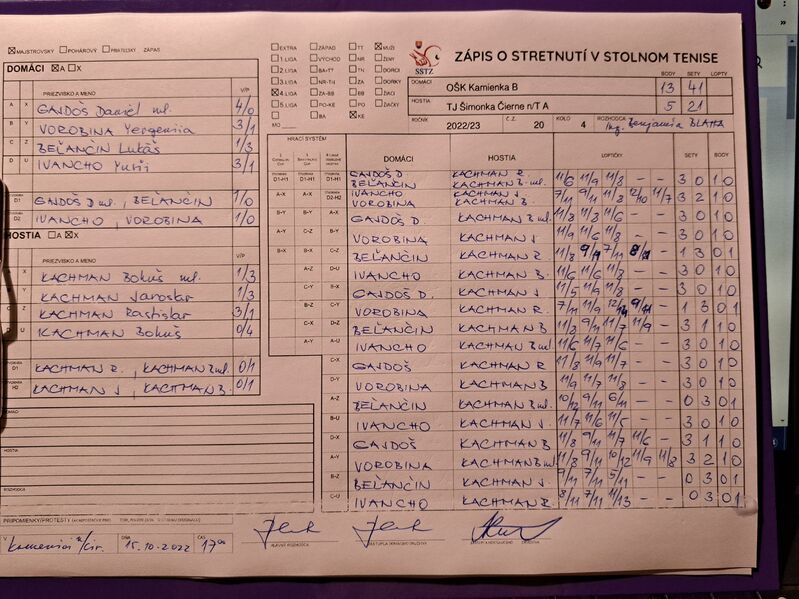 MAJSTROVSKÝ POHÁROVÝ PRIATEĽSKÝ ZÁPAS
EXTRA ZÁPAD TT MUŽI
1. LIGA VÝCHOD NR ŽENY
2. LIGA BA+TT TN DORCI
3. LIGA NR+TN ZA DORKY
4. LIGA ZA-BB BB ŽIACI
5. LIGA PO-KE PO ŽIAČKY
BA KE
MO
SSTZ
ZÁPIS O STRETNUTÍ V STOLNOM TENISE
BODY SETY LOPTY
DOMÁCI OŠK Kamienka B 13 41
HOSTIA TJ Šimonka Čierne n/T A 5 21
ROČNÍK 2022/23 Č.Z. 20 KOLO 4 ROZHODCA Ing. Benjamín BLAHA
DOMÁCI A X
PRIEZVISKO A MENO V/P
A X GAJDOŠ Daniel ml. 4/0
B Y VOROBINA Yevgeniia 3/1
C Z BEĽANČIN Lukáš 1/3
D U IVANCHO Yurii 3/1
D1 GAJDOŠ D ml., BEĽANČIN 1/0
D2 IVANCHO, VOROBINA 1/0
HOSTIA A X
PRIEZVISKO A MENO V/P
X KACHMAN Bohuš ml. 1/3
Y KACHMAN Jaroslav 1/3
Z KACHMAN Rastislav 3/1
U KACHMAN Bohuš 0/4
D1 KACHMAN R., KACHMAN B ml. 0/1
H2 KACHMAN J, KACHMAN B. 0/1
DOMÁCI
HOSTIA
ROZHODCA
HRACÍ SYSTÉM DOMÁCI HOSTIA LOPTIČKY SETY BODY
D1-H1 D1-H1 D1-H1 GAJDOŠ D BEĽANČIN KACHMAN R. KACHMAN B ml. 11/6 11/9 11/8 - - 3 0 1 0
A-X A-X D2-H2 IVANCHO VOROBINA KACHMAN J KACHMAN B. 7/11 9/11 11/8 12/10 11/7 3 2 1 0
B-Y B-Y A-X GAJDOŠ D KACHMAN B ml. 11/8 11/8 11/6 - - 3 0 1 0
A-Y C-Z B-Y VOROBINA KACHMAN J 11/9 11/6 11/8 - - 3 0 1 0
B-X B-X C-Z BEĽANČIN KACHMAN R 11/8 9/11 7/11 - 1 3 0 1
A-Z D-U IVANCHO KACHMAN B. 11/6 11/6 11/8 - - 3 0 1 0
C-Y B-X GAJDOŠ D. KACHMAN J 11/5 11/9 11/8 - - 3 0 1 0
B-Z C-Y VOROBINA KACHMAN R. 7/11 11/9 12/14 9/11 - 1 3 0 1
C-X D-Z BEĽANČIN KACHMAN B 11/8 9/11 11/7 11/9 - 3 1 1 0
A-Y A-U IVANCHO KACHMAN B ml 11/6 11/7 11/6 - - 3 0 1 0
C-X GAJDOŠ KACHMAN R 11/8 11/9 11/7 - - 3 0 1 0
D-Y VOROBINA KACHMAN B 11/9 11/7 11/8 - - 3 0 1 0
A-Z BEĽANČIN KACHMAN B ml. 10/12 9/11 6/11 - - 0 3 0 1
B-U IVANCHO KACHMAN J. 11/7 11/6 11/5 - - 3 0 1 0
D-X GAJDOŠ KACHMAN B 11/8 9/11 11/7 11/6 - 3 1 1 0
A-Y VOROBINA KACHMAN B ml 11/8 9/11 10/12 11/9 11/8 3 2 1 0
B-Z BEĽANČIN KACHMAN J 9/11 7/11 5/11 - - 0 3 0 1
C-U IVANCHO KACHMAN R. 8/11 7/11 11/13 - - 0 3 0 1
PRIPOMIENKY/PROTESTY
V DŇA 15.10.2022 ČAS 17⁰⁰
HLAVNÝ ROZHODCA